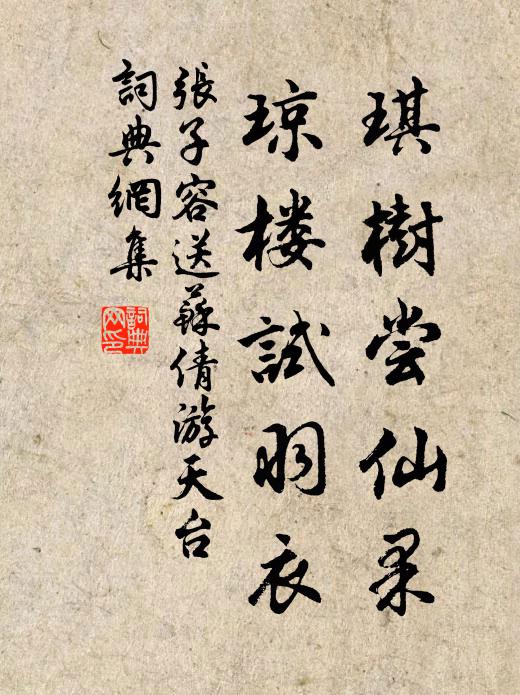 琪樹尝仙果
琼楼試羽衣
張子容送蘇倩游天台
詞典網集
詞典网印